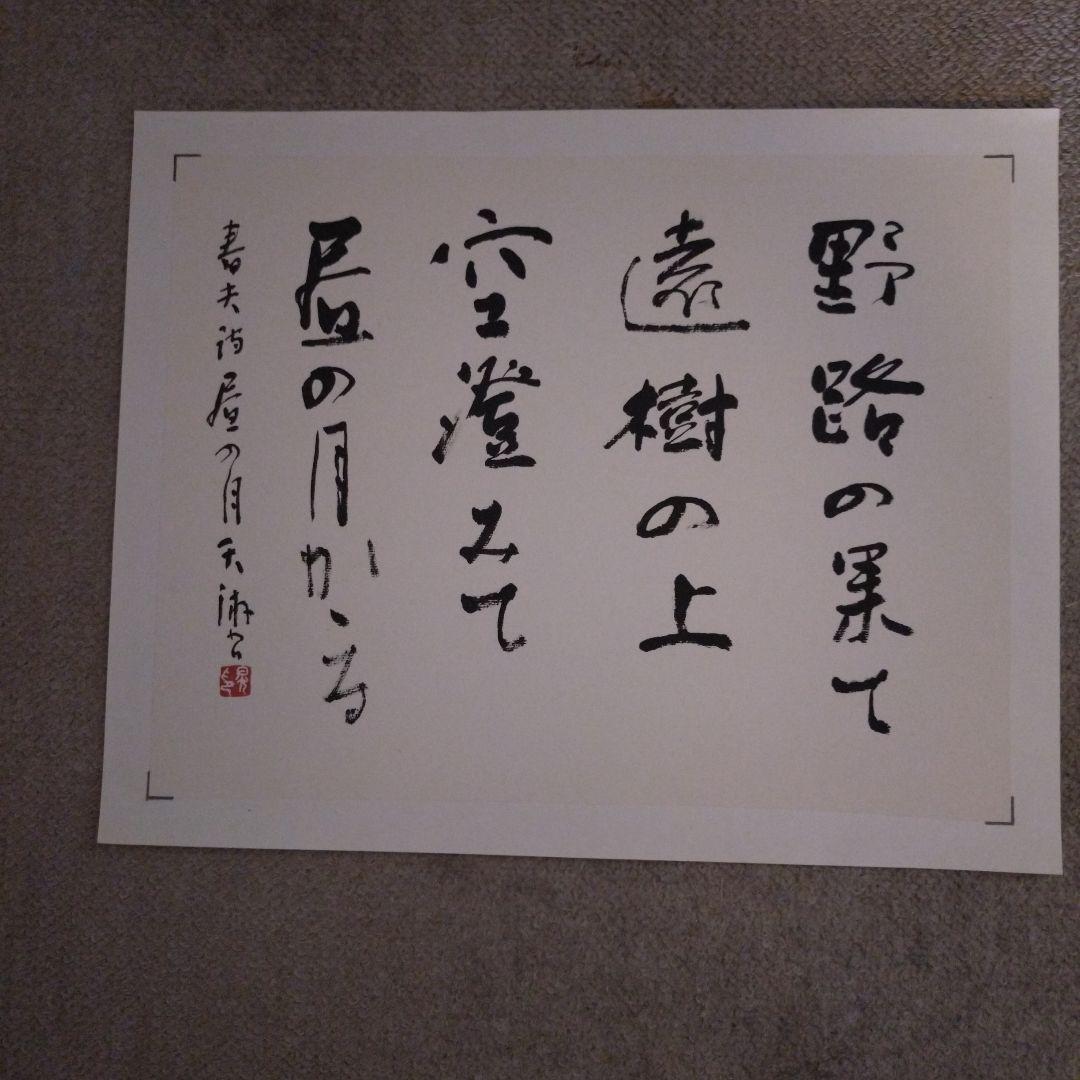 野路の果て
遠樹の上
空澄みて
昼の月かゝる
春夫詩昼の月 天